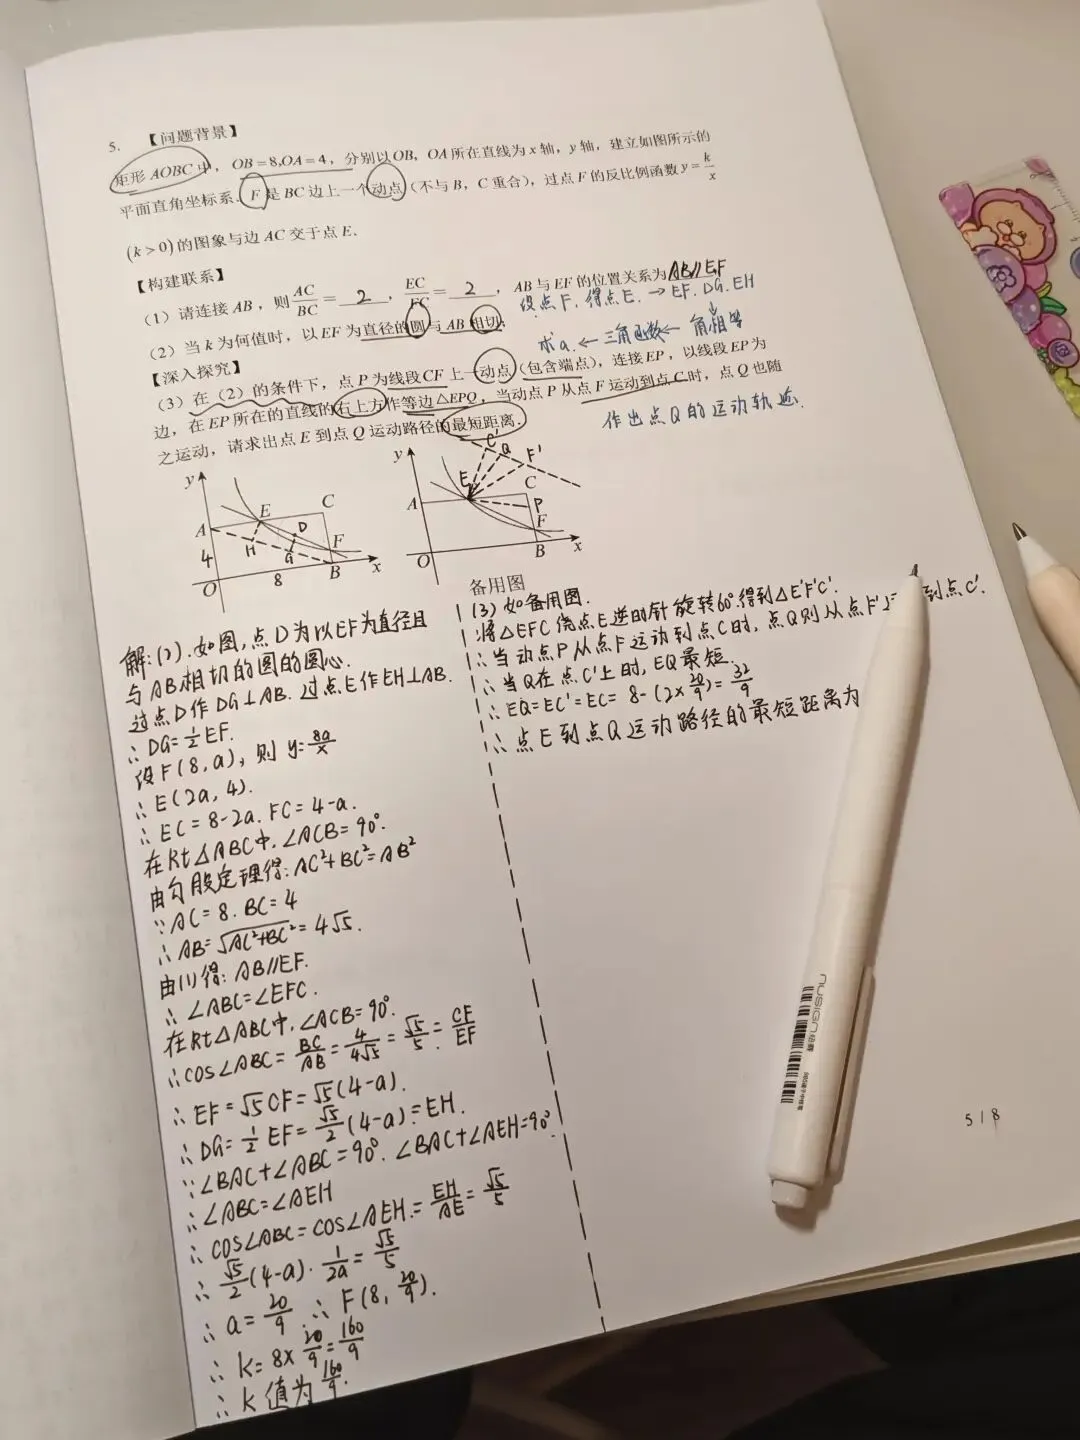 5. 【问题背景】
矩形 AOBC 中，OB=8,OA=4，分别以OB，OA所在直线为x轴，y轴，建立如图所示的
平面直角坐标系．F是BC边上一个动点（不与B，C重合），过点F的反比例函数 y=k/x
(k>0)的图象与边AC交于点E．
【构建联系】
（1）请连接AB，则 AC/BC = 2，EC/FC = 2，AB与EF的位置关系为 AB∥EF
设点F.得点E.→EF.DG.EH
（2）当k为何值时，以EF为直径的圆与AB相切；
求a.←三角函数←角相等
【深入探究】
（3）在（2）的条件下，点P为线段CF上一动点（包含端点），连接EP，以线段EP为
边，在EP所在的直线的右上方作等边△EPQ，当动点P从点F运动到点C时，点Q也随
之运动，请求出点E到点Q运动路径的最短距离．
作出点Q的运动轨迹.
y A E C D H G F 4 O 8 B x
y C' Q F' E C A P F O B x
备用图
解:(2).如图,点D为以EF为直径且
与AB相切的圆的圆心.
过点D作DG⊥AB.过点E作EH⊥AB.
∴DG=1/2EF.
设F(8,a),则y=8a/x
∴E(2a,4).
∴EC=8-2a.FC=4-a.
在Rt△ABC中.∠ACB=90°.
由勾股定理得:AC²+BC²=AB²
∵AC=8.BC=4
∴AB=√(AC²+BC²)=4√5.
由(1)得:AB∥EF.
∴∠ABC=∠EFC.
在Rt△ABC中,∠ACB=90°.
∴cos∠ABC=BC/AB=4/4√5=√5/5=CF/EF
∴EF=√5CF=√5(4-a).
∴DG=1/2EF=√5/2(4-a)=EH.
∵∠BAC+∠ABC=90°.∠BAC+∠AEH=90°.
∴∠ABC=∠AEH
∴cos∠ABC=cos∠AEH.=EH/AE=√5/5
∴√5/2(4-a)·1/2a=√5/5
∴a=20/9.∴F(8,20/9).
∴k=8×20/9=160/9
∴k值为160/9.
(3)如备用图.
将△EFC绕点E逆时针旋转60°.得到△E'F'C'.
∴当动点P从点F运动到点C时,点Q则从点F'到点C'.
∴当Q在点C'上时,EQ最短.
∴EQ=EC'=EC=8-(2×20/9)=32/9
∴点E到点Q运动路径的最短距离为
NUSIGN
5 / 8